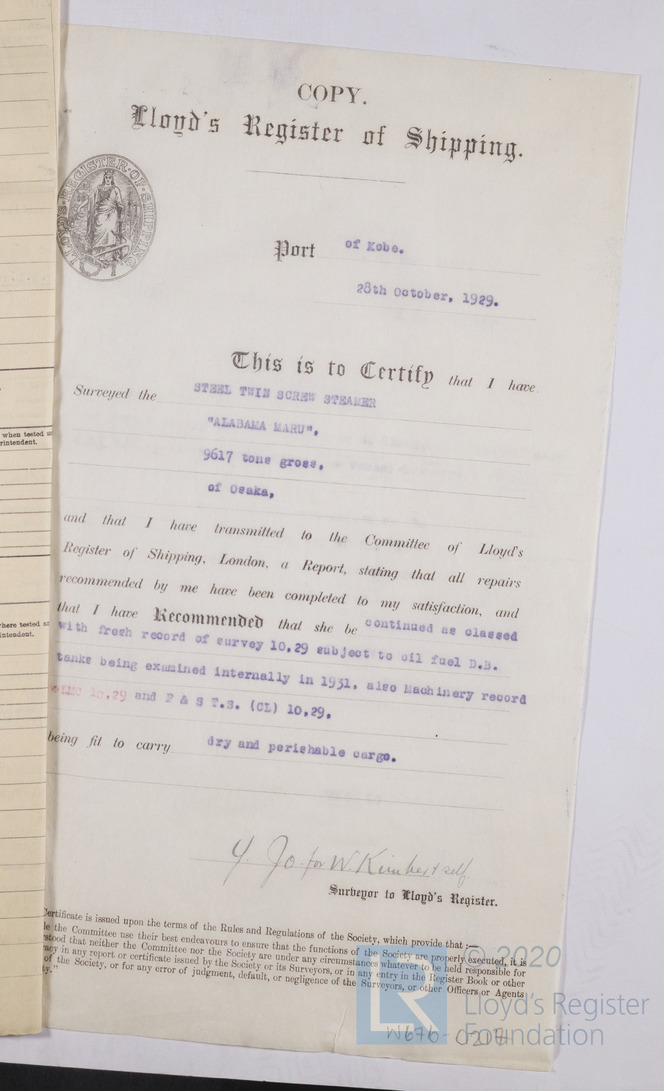 COPY.
Lloyd's Register of Shipping.
LLOYD'S REGISTER OF SHIPPING
Port of Kobe.
28th October, 1929.
This is to Certify that I have
Surveyed the STEEL TWIN SCREW STEAMER
"ALABAMA MARU",
9617 tons gross,
of Osaka,
and that I have transmitted to the Committee of Lloyd's
Register of Shipping, London, a Report, stating that all repairs
recommended by me have been completed to my satisfaction, and
that I have Recommended that she be continued as classed
with fresh record of survey 10,29 subject to oil fuel D.B.
tanks being examined internally in 1931, also Machinery record
LMC 10.29 and P & S T.S. (CL) 10,29.
being fit to carry dry and perishable cargo.
Y. Jo for W. & self
Surveyor to Lloyd's Register.
Certificate is issued upon the terms of the Rules and Regulations of the Society, which provide that :—
the Committee use their best endeavours to ensure that the functions of the Society are properly executed, it is
stood that neither the Committee nor the Society are under any circumstances whatever to be held responsible for
in any report or certificate issued by the Society or its Surveyors, or in any entry in the Register Book or other
of the Society, or for any error of judgment, default, or negligence of the Surveyors, or other Officers or Agents
ty."
when tested
rintendent.
here tested
intendent.
© 2020
LR
Lloyd's Register
Foundation
W676-0214